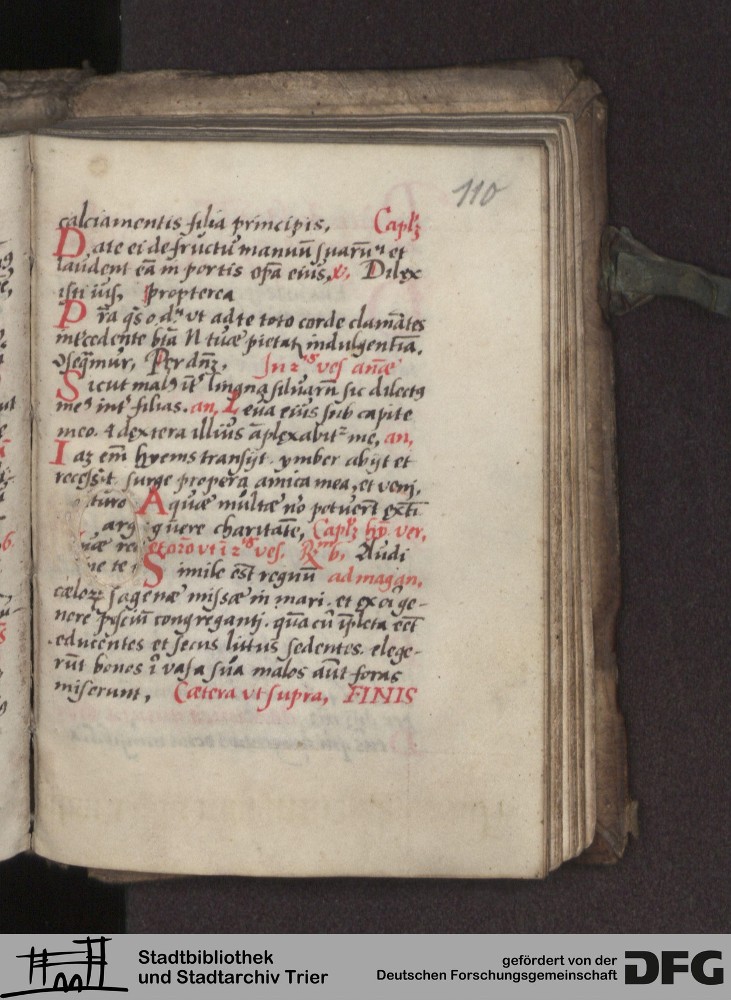 110
calciamentis filia principis, Capl'ꝫ
Date ei de fructu manuū suarū et
laudent eā in portis oꝑa eius, v, Dilex
isti ius, propterea
Pr̄a q̄s o. d. ut ad te toto corde clamātes
intercedente btā N tuæ pietatꝭ indulgentiā,
Per dn̄ꝫ, In 2 ves anæ
Sicut maly īt ligna siluarū sic dilecta
me int filias. an, Leua eius sub capite
meo. & dextera illius āplexabit me, an,
Iaȝ em̄ hyems transijt. ymber abijt et
recessit surge propera amica mea, et veni,
Aquæ multæ nō potuerūt exti
guere charitatē, Capl'ꝫ hȳ ver,
et orō ut ī 2 ves, b, Audi
Simile est regnū ad magn,
cælorꝫ sagenæ missæ in mari. et ex oī ge-
nere pisciū congreganti. quā cū īpleta eēt
educentes et secus littus sedentes. elege-
rūt bonos ī vasa sua malos aūt foras
miserunt, Cætera ut supra, FINIS
Stadtbibliothek
und Stadtarchiv Trier
gefördert von der
Deutschen Forschungsgemeinschaft
DFG